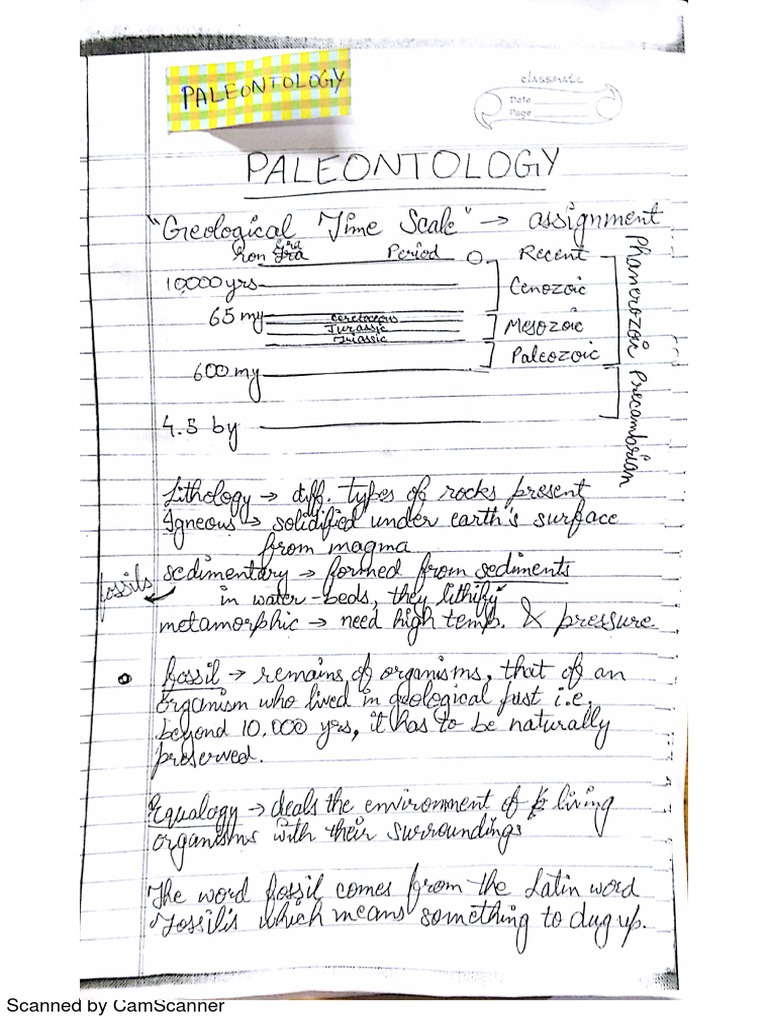 PALEONTOLOGY
classmate
Date
Page
PALEONTOLOGY
"Geological Time Scale" → assignment
Eon Era Period Recent
10,000 yrs Cenozoic
65 my Cretaceous
Jurassic Mesozoic
Triassic
Paleozoic
600 my
4.5 by
Phanerozoic Precambrian
Lithology → diff. types of rocks present
Igneous → solidified under earth's surface
from magma
fossils sedimentary → formed from sediments
in water-beds, they lithify
metamorphic → need high temp. & pressure
fossil → remains of organisms, that of an
organism who lived in geological past i.e,
beyond 10,000 yrs, it has to be naturally
preserved.
Equalogy → deals the environment of living
organisms with their surroundings
The word fossil comes from the Latin word
Fossilis which means something to dug up.
Scanned by CamScanner